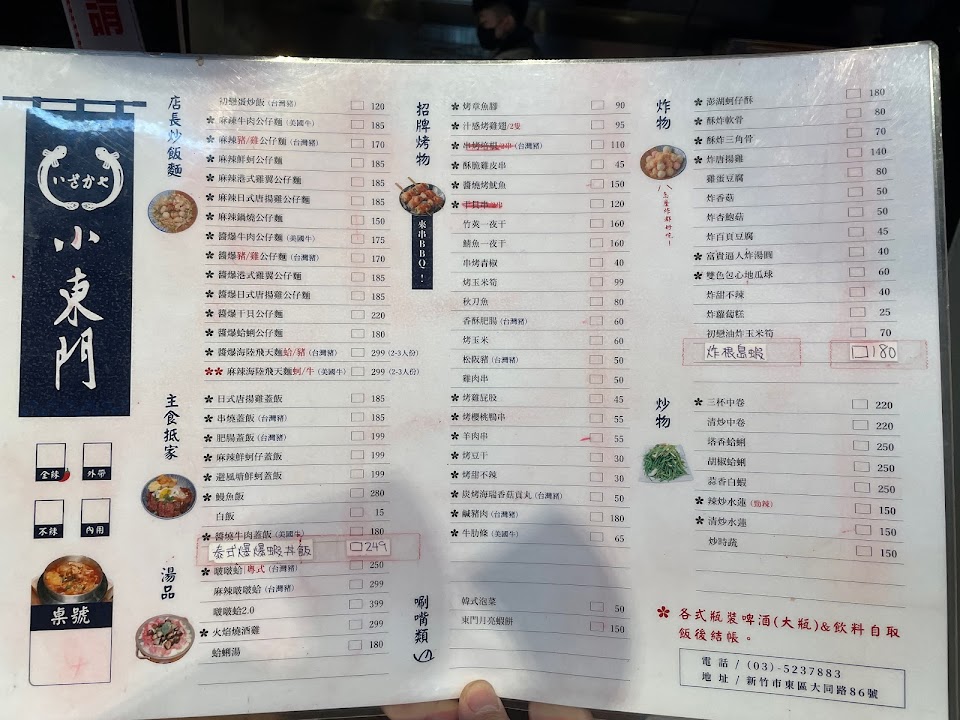 請
いざかや
小東門
全辣
外帶
不辣
內用
桌號
店長炒飯麵
初戀蛋炒飯(台灣豬) 120
麻辣牛肉公仔麵(美國牛) 185
麻辣豬/雞公仔麵(台灣豬) 170
麻辣鮮蚵公仔麵 185
麻辣港式雞翼公仔麵 185
麻辣日式唐揚雞公仔麵 185
麻辣鍋燒公仔麵 150
醬爆牛肉公仔麵(美國牛) 175
醬爆豬/雞公仔麵(台灣豬) 170
醬爆港式雞翼公仔麵 185
醬爆日式唐揚雞公仔麵 185
醬爆干貝公仔麵 220
醬爆蛤蜊公仔麵 180
醬爆海陸飛天麵蛤/豬(台灣豬) 299 (2-3人份)
麻辣海陸飛天麵蚵/牛(美國牛) 299 (2-3人份)
主食抵家
日式唐揚雞蓋飯 185
串燒蓋飯(台灣豬) 185
肥腸蓋飯(台灣豬) 199
麻辣鮮蚵仔蓋飯 199
避風塘鮮蚵蓋飯 199
鰻魚飯 280
白飯 15
醬燒牛肉蓋飯(美國牛) 180
泰式爆爆蝦丼飯 249
湯品
啵啵蛤|粵式(台灣豬) 250
麻辣啵啵蛤(台灣豬) 299
啵啵蛤2.0 399
火焰燒酒雞 299
蛤蜊湯 180
招牌烤物
來串BBQ!
烤章魚腳 90
汁感烤雞翅/2隻 95
(台灣豬) 110
酥脆雞皮串 45
醬燒烤魷魚 150
120
竹莢一夜干 160
鯖魚一夜干 160
串烤青椒 40
烤玉米筍 99
秋刀魚 80
香酥肥腸(台灣豬) 60
烤玉米 60
松阪豬(台灣豬) 50
雞肉串 50
烤雞屁股 45
烤櫻桃鴨串 55
羊肉串 55
烤豆干 30
烤甜不辣 30
炭烤海瑞香菇貢丸(台灣豬) 50
鹹豬肉(台灣豬) 180
牛肋條(美國牛) 65
唰嘴類
韓式泡菜 50
東門月亮蝦餅 150
炸物
澎湖蚵仔酥 180
酥炸軟骨 80
酥炸三角骨 70
炸唐揚雞 140
雞蛋豆腐 80
炸香菇 50
炸杏鮑菇 50
炸百頁豆腐 45
富貴逼人炸湯圓 40
雙色包心地瓜球 60
炸甜不辣 40
炸蘿蔔糕 25
初戀油炸玉米筍 70
炸根島蝦 180
炒物
三杯中卷 220
清炒中卷 220
塔香蛤蜊 250
胡椒蛤蜊 250
蒜香白蝦 250
辣炒水蓮(勁辣) 150
清炒水蓮 150
炒時蔬 150
各式瓶裝啤酒(大瓶)&飲料自取
飯後結帳。
電話 / (03)-5237883
地址 / 新竹市東區大同路86號